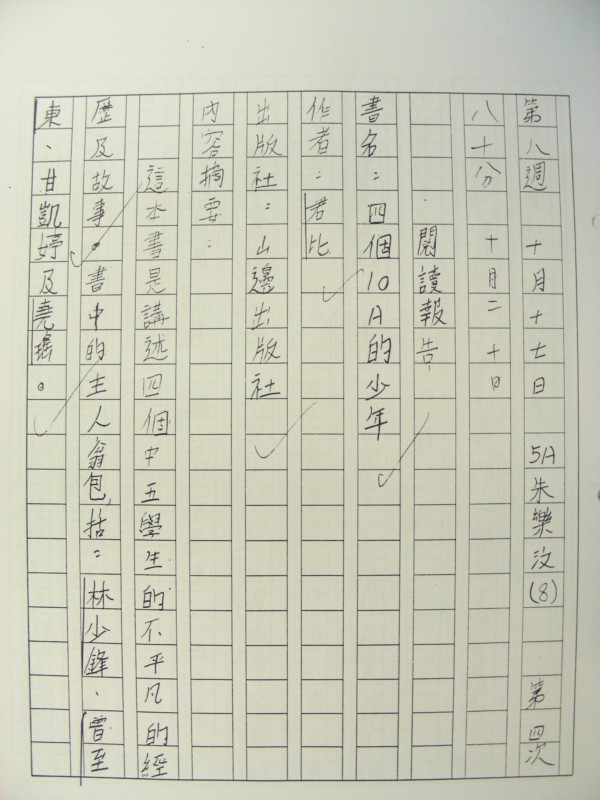 第八週 十月十七日 5A朱樂汶(8) 第四次
八十分 十月二十日
閱讀報告
書名：四個10A的少年
作者：君比
出版社：山邊出版社
內容摘要：
這本書是講述四個中五學生的不平凡的經
歷及故事。書中的主人翁包括：林少鋒、曾至
東、甘凱婷及堯瑤。